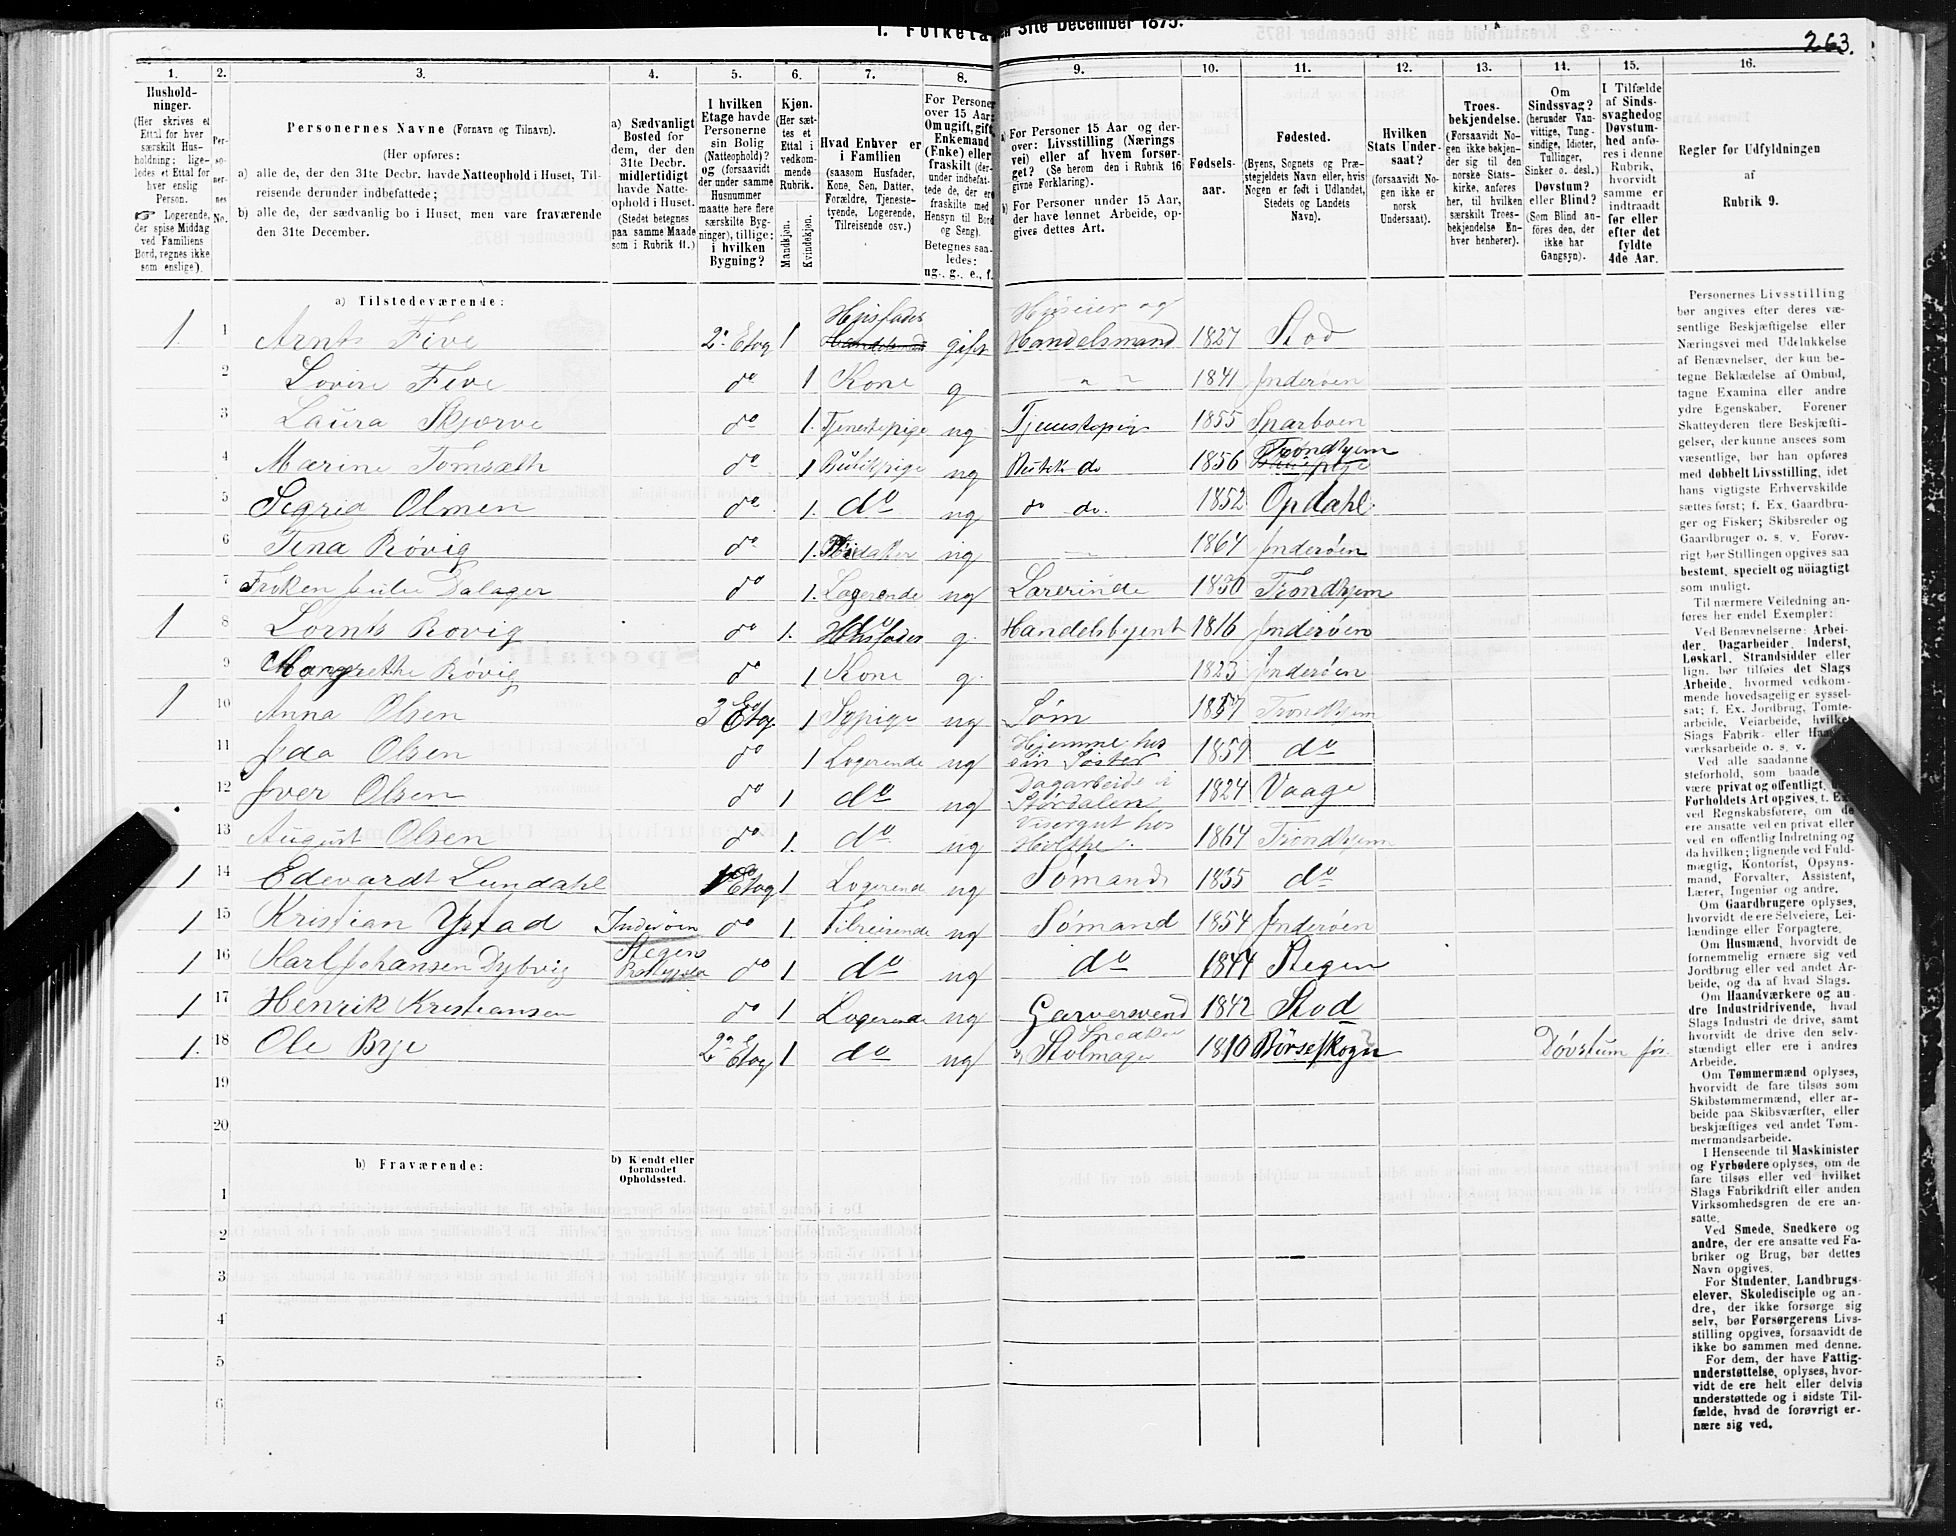 1. Folketal den 31te December 1875.
263.
1. 2. 3. 4. 5. 6. 7. 8. 9. 10. 11. 12. 13. 14. 15. 16.
Hushold-
ninger.
(Her skrives et
Ettal for hver
særskilt Hus-
holdning; lige-
ledes et Ettal for
hver enslig
Person.
Logerende,
der spise Middag
ved Familiens
Bord, regnes ikke
som enslige).
Per-
so-
ner-
nes
No.
Personernes Navne (Fornavn og Tilnavn).
(Her opføres:
a) alle de, der den 31te Decbr. havde Natteophold i Huset, Til-
reisende derunder indbefattede;
b) alle de, der sædvanlig bo i Huset, men vare fraværende
den 31te December.
a) Sædvanligt
Bosted for
dem, der den
31te Decbr.
midlertidigt
havde Natte-
ophold i Huset.
(Stedet betegnes
paa samme Maade
som i Rubrik 11.)
I hvilken
Etage havde
Personerne
sin Bolig
(Natteophold)?
og (forsaavidt
der under samme
Husnummer
maatte høre flere
særskilte Byg-
ninger), tillige:
i hvilken
Bygning?
Kjøn.
(Her sæt-
tes et
Ettal i
vedkom-
mende
Rubrik.
Mandkjøn.
Kvindekjøn.
Hvad Enhver er
i Familien
(saasom Husfader,
Kone, Søn, Datter,
Forældre, Tjeneste-
tyende, Logerende,
Tilreisende osv.)
For Personer
over 15 Aar:
Om ugift, gift,
Enkemand
(Enke) eller
fraskilt (der-
under indbefat-
tede de, der ere
fraskilte med
Hensyn til Bord
og Seng).
Betegnes saa-
ledes:
ug., g., e., f.
a) For Personer 15 Aar og der-
over: Livsstilling (Nærings
vei) eller af hvem forsør-
get? (Se herom den i Rubrik 16
givne Forklaring).
b) For Personer under 15 Aar,
der have lønnet Arbeide, op-
gives dettes Art.
Fødsels-
aar.
Fødested.
(Byens, Sognets og Præ-
stegjeldets Navn eller, hvis
Nogen er født i Udlandet,
Stedets og Landets
Navn).
Hvilken
Stats Under-
saat?
(forsaavidt No-
gen ikke er
norsk
Undersaat).
Troes-
bekjendelse.
(Forsaavidt No-
gen ikke bekjen-
der sig til den
norske Stats-
kirke, anføres
her, til hvilken
særskilt Troes-
bekjendelse En-
hver henhører).
Om
Sindssvag?
(herunder Van-
vittige, Tung-
sindige, Idioter,
Tullinger,
Sinker o. desl.)
Døvstum?
eller Blind?
(Som Blind an-
føres den, der
ikke har
Gangsyn).
I Tilfælde
af Sinds-
svaghed og
Døvstum-
hed anfø-
res i denne
Rubrik,
hvorvidt
samme er
indtraadt
før eller
efter det
fyldte
4de Aar.
Regler for Udfyldningen
af
Rubrik 9.
a) Tilstedeværende:
1 1 Arnts Five 2. Etag 1 Husfader Handelsmand gift Huseier og Handelsmand 1827 Stod
2 Lovise Five do 1 Kone g " " 1841 Inderøen
3 Laura Skjerve do 1. Tjenestepige ug Tjenestepige 1855 Sparboen
4 Marine Tomsæth do 1 Butikpige ug Butik do 1856 Trondhjem
5 Segrid Olmen do 1. do ug do do. 1852 Opdahl.
6 Tina Røvig do 1. ug 1864 Inderøen
7 Frøken Julie Dalager do 1. Logerende ug Lærerinde 1830 Trondhjem
1 8 Lornts Rovig do 1. Husfader g. Handelsbyent 1816 Inderøen
9 Margrethe Røvig do 1 Kone g. 1823 Inderøen
1 10 Anna Olsen 3 Etag. 1 Sypige ug Søm 1857 Trondhjem
11 Ida Olsen do 1 Logerende ug Hjemme hos sin Søster 1859 do
12 Iver Olsen do 1 do ug Dagarbeide i Størdalen 1824 Vaage
13 August Olsen do 1. do ug Visergut hos Holthe. 1864 Trondhjem
1 14 Edevardt Lundahl Etag 1 Logerende ug Sømand 1835 do
1 15 Kristian Ystad Inderøen do 1. Tilreisende ug Sømand 1854 Inderøen
1 16 Karl Johansen Dybvig Stegens do 1 do ug do 1844 Stegen
1 17 Henrik Kristiansen do 1 Logerende ug Garversvend 1842 Stod
1. 18 Ole Bye 2 Etag 1 do ug Snedker og Stolmager 1810 Börseskogn Døvstum før
19
20
b) Fraværende:
b) Kjendt eller
formodet
Opholdssted.
1
2
3
4
5
6
Personernes Livsstilling
bør angives efter deres væ-
sentlige Beskjæftigelse eller
Næringsvei med Udelukkelse
af Benævnelser, der kun be-
tegne Beklædelse af Ombud,
tagne Examina eller andre
ydre Egenskaber. Forener
Skatteyderen flere Beskjæfti-
gelser, der kunne ansees som
væsentlige, bør han opføres
med dobbelt Livsstilling, idet
hans vigtigste Erhvervskilde
sættes først; f. Ex. Gaardbru-
ger og Fisker; Skibsreder og
Gaardbruger o. s. v. Forøv-
rigt bør Stillingen opgives saa
bestemt, specielt og nöiagtigt
som muligt.
Til nærmere Veiledning an-
føres her endel Exempler:
Ved Benævnelserne: Arbei-
der, Dagarbeider, Inderst,
Løskarl, Strandsidder eller
lign. bør tilføies det Slags
Arbeide, hvormed vedkom-
mende hovedsagelig er syssel-
sat; f. Ex. Jordbrug, Tomte-
arbeide, Veiarbeide, hvilket
Slags Fabrik- eller
værksarbeide o. s. v.
Ved alle saadanne
steforhold, som baade
være privat og offentligt,
Forholdets Art opgives, f. Ex.
ved Regnskabsførere, om de
ere ansatte ved en privat eller
ved en offentlig Indretning og
da hvilken; lignende ved Fuld-
mægtig, Kontorist, Opsyns-
mand, Forvalter, Assistent,
Lærer, Ingeniør og andre.
Om Gaardbrugere oplyses,
hvorvidt de ere Selveiere, Lei-
lændinge eller Forpagtere.
Om Husmænd, hvorvidt de
fornemmelig ernære sig ved
Jordbrug eller ved andet Ar-
beide, og da af hvad Slags.
Om Haandværkere og an-
dre Industridrivende, hvad
Slags Industri de drive, samt
hvorvidt de drive den selv-
stændigt eller ere i andres
Arbeide.
Om Tømmermænd oplyses,
hvorvidt de fare tilsøs som
Skibstømmermænd, eller ar-
beide paa Skibsværfter, eller
beskjæftiges ved andet Tøm-
mermandsarbeide.
I Henseende til Maskinister
og Fyrbødere oplyses, om de
fare tilsøs eller ved hvilket
Slags Fabrikdrift eller anden
Virksomhedsgren de ere an-
satte.
Ved Smede, Snedkere og
andre, der ere ansatte ved Fa-
briker og Brug, bør dettes
Navn opgives.
For Studenter, Landbrugs-
elever, Skoledisciple og an-
dre, der ikke forsørge sig
selv, bør Forsørgerens Livs-
stilling opgives, forsaavidt de
ikke bo sammen med denne.
For dem, der have Fattig-
understøttelse, oplyses, hvor-
vidt de ere helt eller delvis
understøttede og i sidste Til-
fælde, hvad de forøvrigt er-
nære sig ved.